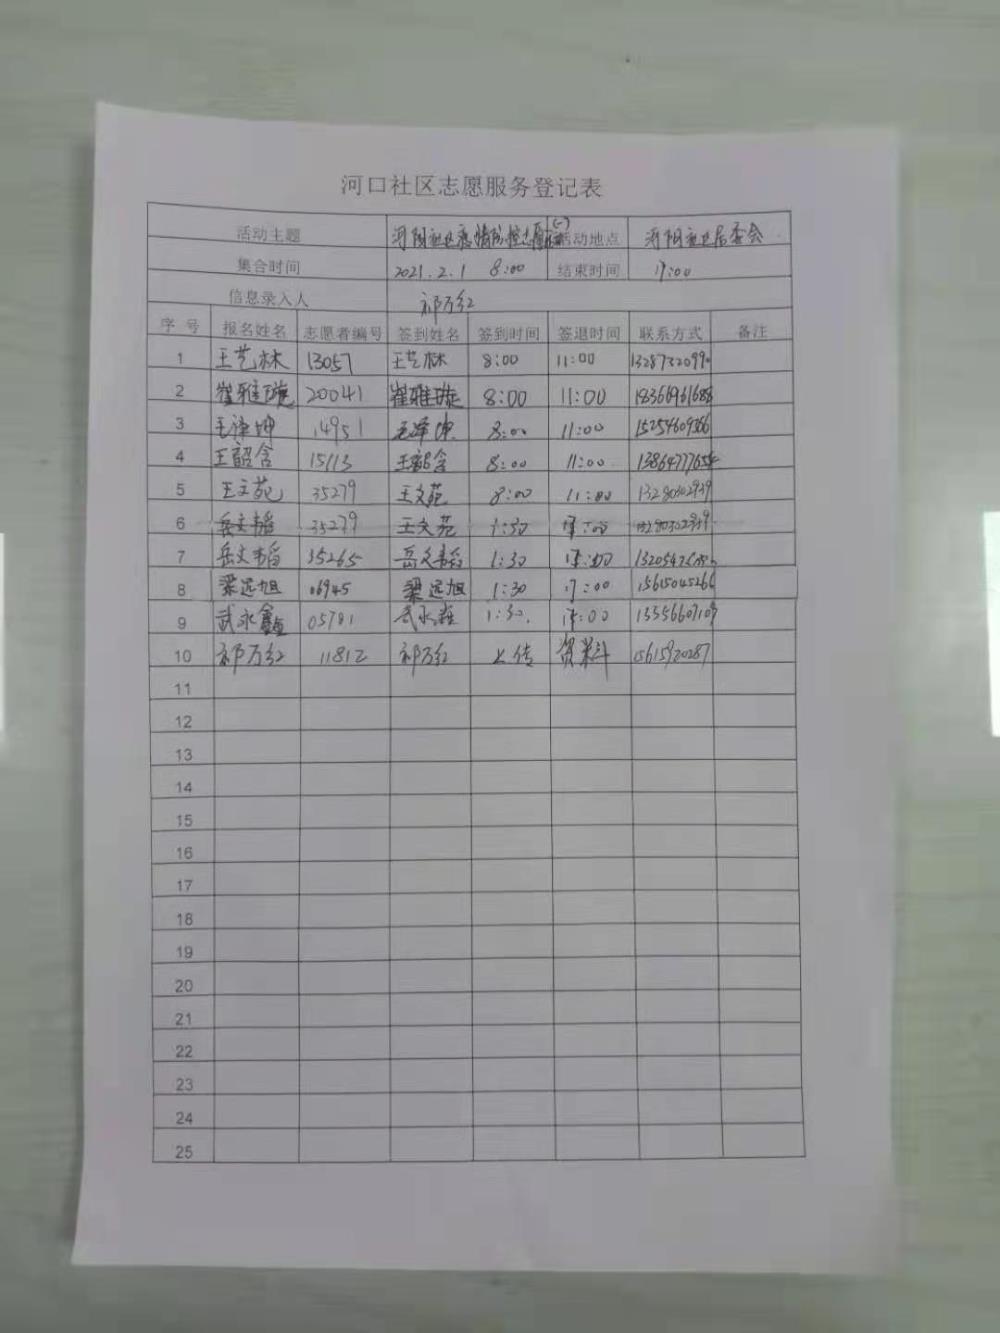 河口社区志愿服务登记表
活动主题 河阳社区疫情防控志愿 (一) 活动地点 河阳社区居委会
集合时间 2021.2.1 8:00 结束时间 17:00
信息录入人 祁万红
序号 报名姓名 志愿者编号 签到姓名 签到时间 签退时间 联系方式 备注
1 王艺林 13057 王艺林 8:00 11:00
2 崔雅璇 20041 崔雅璇 8:00 11:00
3 14951 8:00 11:00
4 王韶含 15113 王韶含 8:00 11:00
5 王文苑 35279 王文苑 8:00 11:00
6 岳文韬 35279 王文苑 1:30
7 岳文韬 35265 岳文韬 1:30
8 梁远旭 06945 梁远旭 1:30 17:00
9 武永鑫 05781 武永鑫 1:30 17:00
10 祁万红 11812 祁万红 上传 资料 15615920287
11
12
13
14
15
16
17
18
19
20
21
22
23
24
25